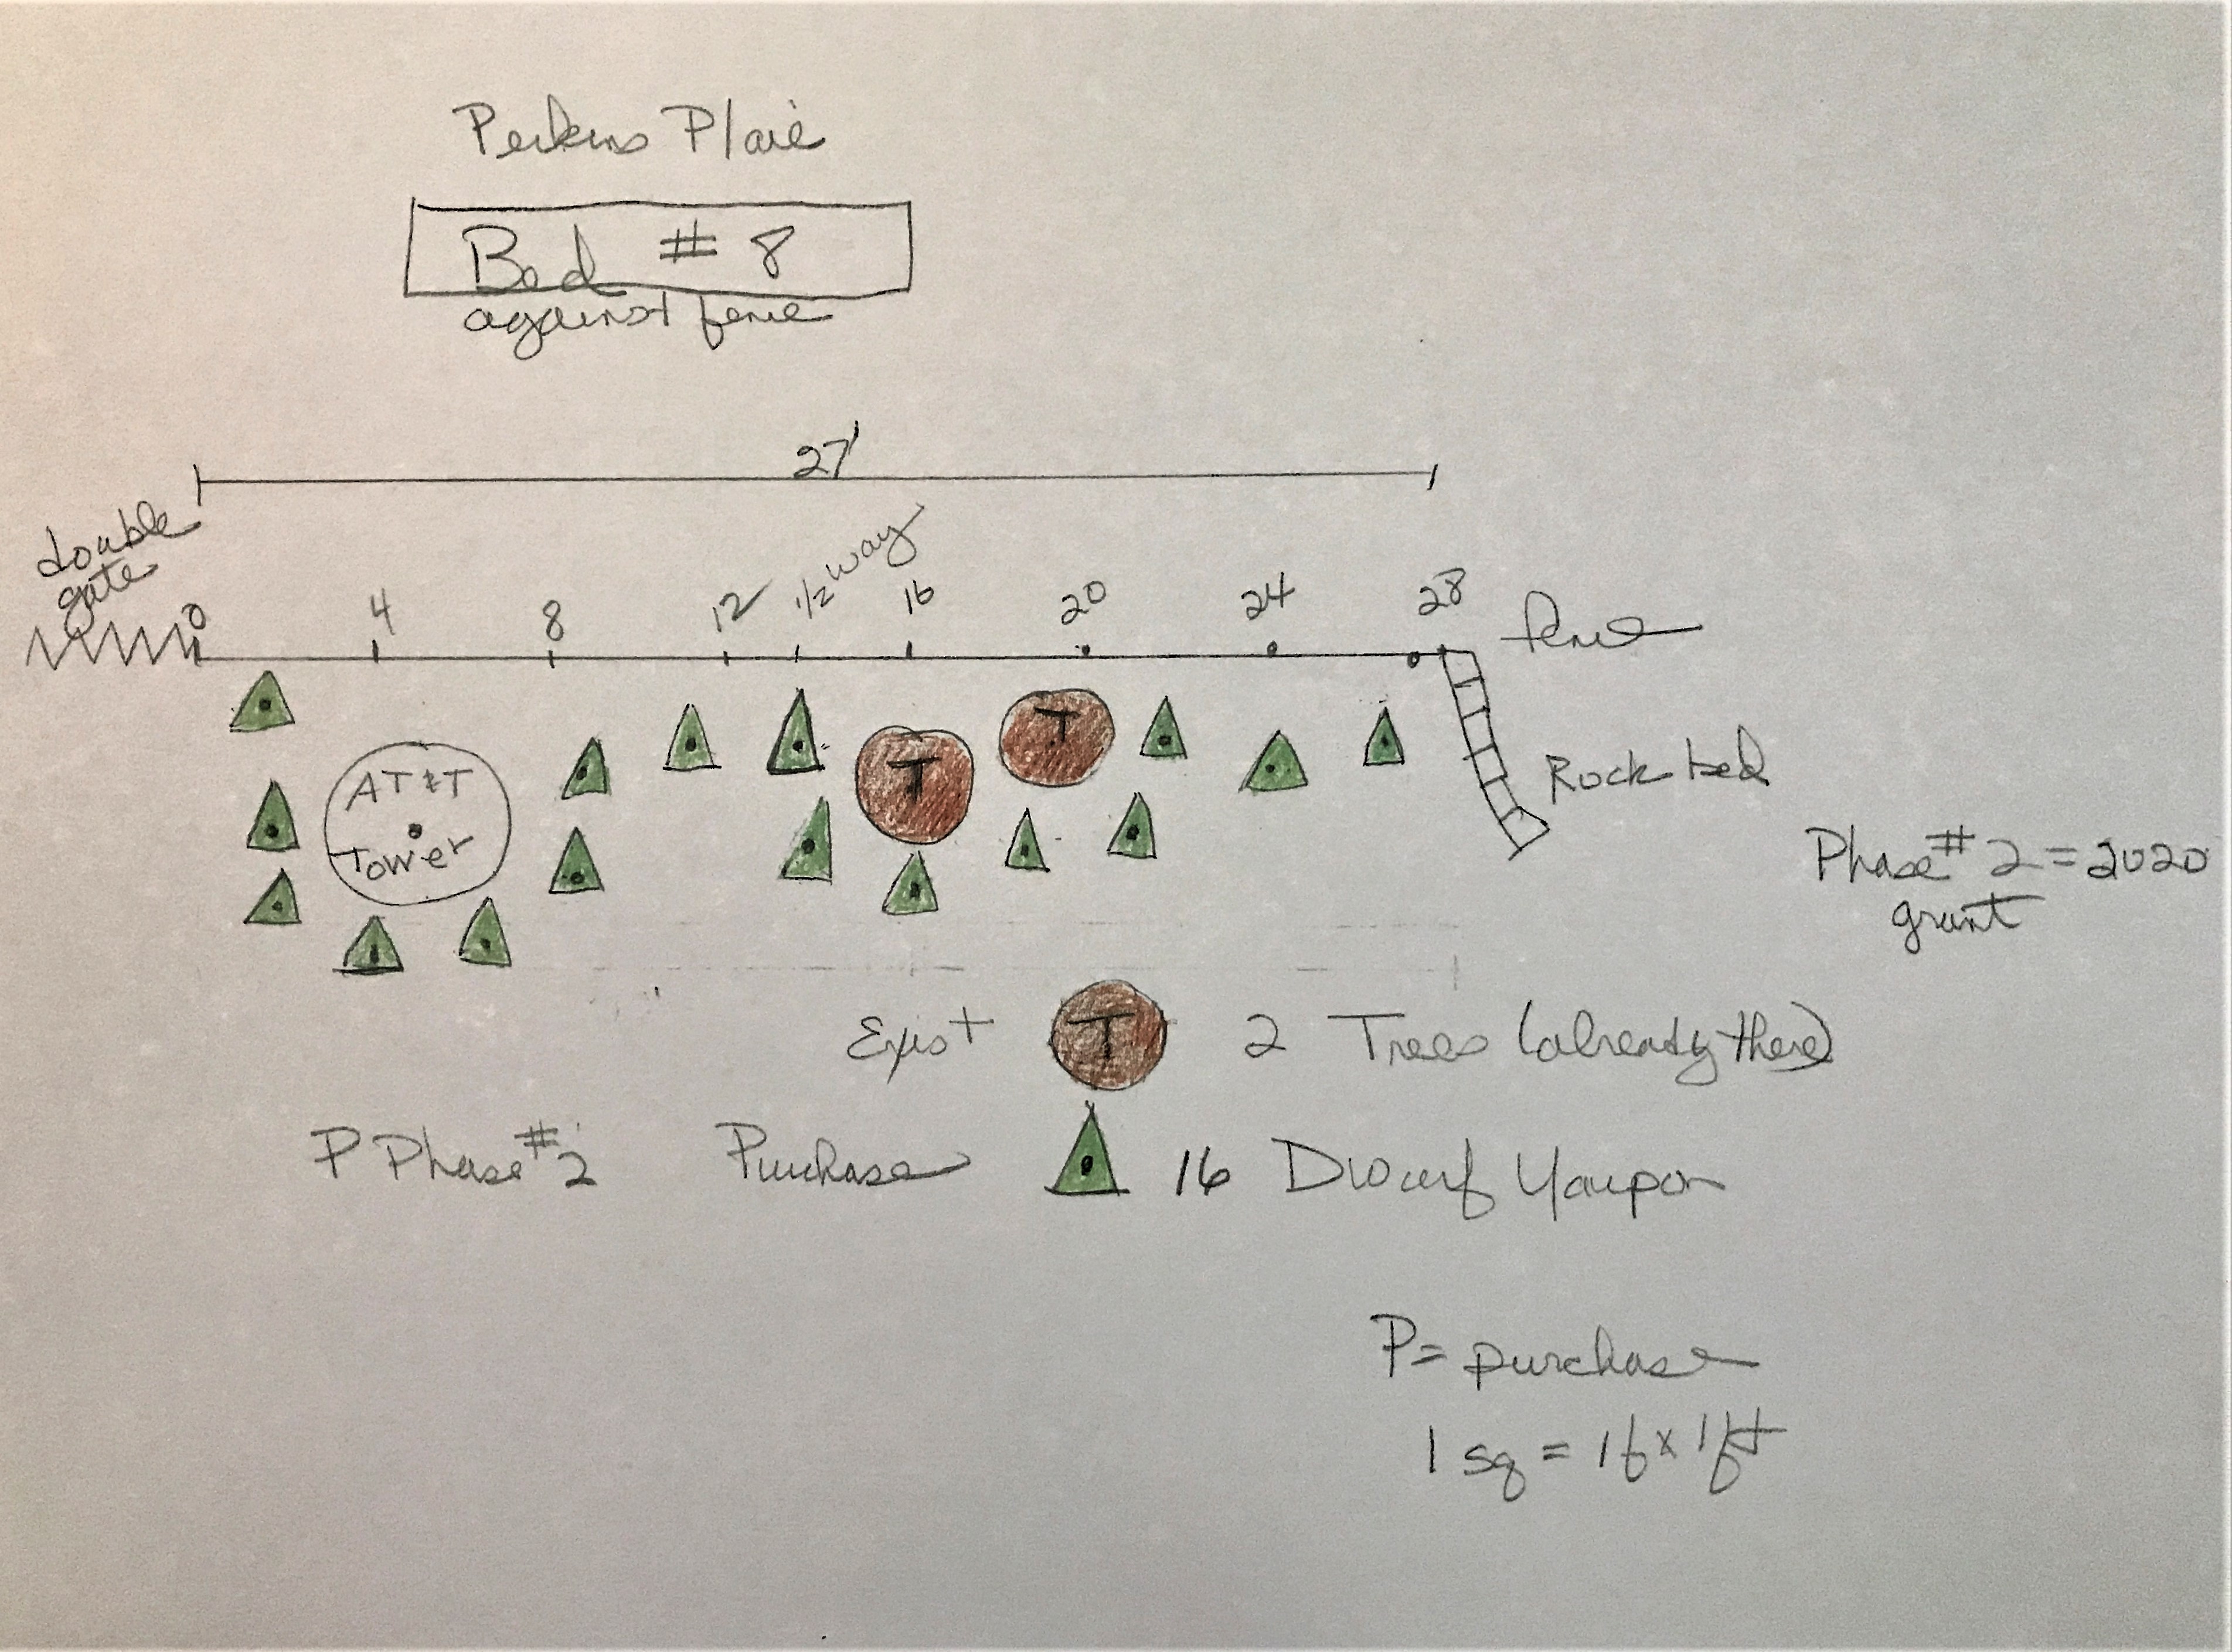 Perkins Place
Bed # 8
against fence
27'
double
gate
0 4 8 12 1/2 way 16 20 24 28 fence
AT&T
Tower
T
T
Rock bed
Phase # 2 = 2020
grant
Exist T 2 Trees (already there)
P Phase # 2 Purchase 16 Dwarf Yaupon
P = purchase
1 sq = 1f x 1ft